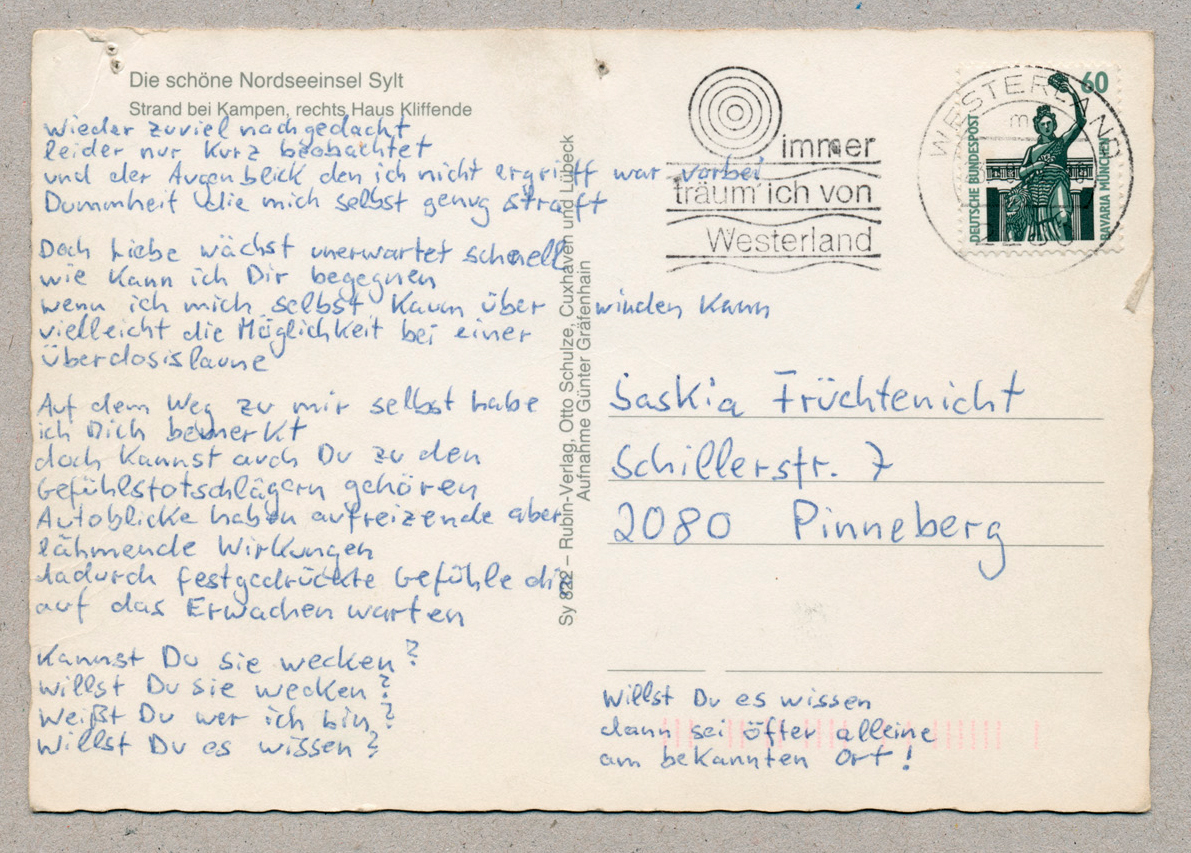 Die schöne Nordseeinsel Sylt
Strand bei Kampen, rechts Haus Kliffende
wieder zuviel nachgedacht
leider nur kurz beobachtet
und der Augenblick den ich nicht ergriff war vorbei
Dummheit die mich selbst genug straft
Doch Liebe wächst unerwartet schnell
wie kann ich Dir begegnen
wenn ich mich selbst kaum über winden kann
vielleicht die Möglichkeit bei einer
Überdosislaune
Auf dem Weg zu mir selbst habe
ich Dich bemerkt
doch kannst auch Du zu den
Gefühlstotschlägern gehören
Autoblicke haben aufreizende aber
lähmende Wirkungen
dadurch festgedrückte Gefühle die
auf das Erwachen warten
Kannst Du sie wecken?
willst Du sie wecken?
Weißt Du wer ich bin?
Willst Du es wissen?
Sy 822 – Rubin-Verlag, Otto Schulze, Cuxhaven und Lübeck
Aufnahme Günter Gräfenhain
immer
träum' ich von
Westerland
WESTERLAND
60
DEUTSCHE BUNDESPOST
BAVARIA MÜNCHEN
Saskia Früchtenicht
Schillerstr. 7
2080 Pinneberg
Willst Du es wissen
dann sei öfter alleine
am bekannten Ort!